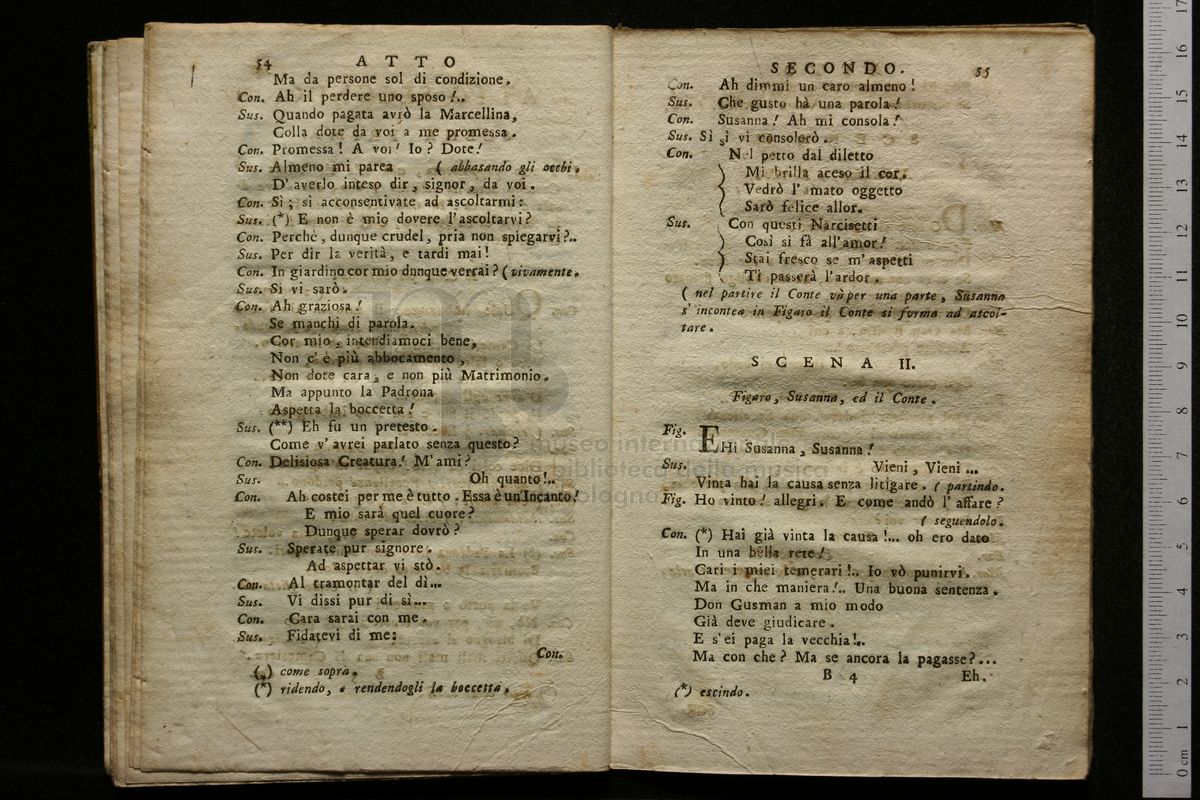 54 ATTO
Ma da persone sol di condizione.
Con. Ah il perdere uno sposo!..
Sus. Quando pagata avrò la Marcellina,
Colla dote da voi a me promessa.
Con. Promessa! A voi! Io? Dote!
Sus. Almeno mi parea ( abbasando gli occhi.
D' averlo inteso dir, signor, da voi.
Con. Sì; si acconsentivate ad ascoltarmi:
Sus. (*) E non è mio dovere l'ascoltarvi?
Con. Perchè, dunque crudel, pria non spiegarvi?..
Sus. Per dir la verità, e tardi mai!
Con. In giardino cor mio dunque verrai? ( vivamente.
Sus. Si vi sarò.
Con. Ah graziosa!
Se manchi di parola.
Cor mio, intendiamoci bene,
Non c' è più abboccamento,
Non dote cara, e non più Matrimonio.
Ma appunto la Padrona
Aspetta la boccetta!
Sus. (**) Eh fu un pretesto.
Come v' avrei parlato senza questo?
Con. Delisiosa Creatura! M' ami?
Sus. Oh quanto!..
Con. Ah costei per me è tutto. Essa è un'Incanto!
E mio sarà quel cuore?
Dunque sperar dovrò?
Sus. Sperate pur signore.
Ad aspettar vi stò.
Con. Al tramontar del dì...
Sus. Vi dissi pur di sì...
Con. Cara sarai con me.
Sus. Fidatevi di me:
Con.
(*) come sopra.
(**) ridendo, e rendendogli la boccetta.
SECONDO. 55
Con. Ah dimmi un caro almeno!
Sus. Che gusto hà una parola!
Con. Susanna! Ah mi consola!
Sus. Sì sì vi consolerò.
Con. Nel petto dal diletto
Mi brilla aceso il cor.
Vedrò l'amato oggetto
Sarò felice allor.
Sus. Con questi Narcisetti
Così si fà all'amor!
Stai fresco se m'aspetti
Ti passerà l'ardor.
( nel partire il Conte và per una parte, Susanna
s' incontea in Figaro il Conte si forma ad ascol-
tare.
SCENA II.
Figaro, Susanna, ed il Conte.
Fig. EHi Susanna, Susanna!
Sus. Vieni, Vieni...
Vinta hai la causa senza litigare. ( partindo.
Fig. Ho vinto! allegri. E come andò l' affare?
( seguendolo.
Con. (*) Hai già vinta la causa!... oh ero dato
In una bella rete!
Cari i miei temerari!.. Io vò punirvi.
Ma in che maniera!.. Una buona sentenza.
Don Gusman a mio modo
Già deve giudicare.
E s'ei paga la vecchia!..
Ma con che? Ma se ancora la pagasse?...
B 4 Eh.
(*) escindo.
museo internazionale
e biblioteca della musica
bologna
0 cm 1 2 3 4 5 6 7 8 9 10 11 12 13 14 15 16 17